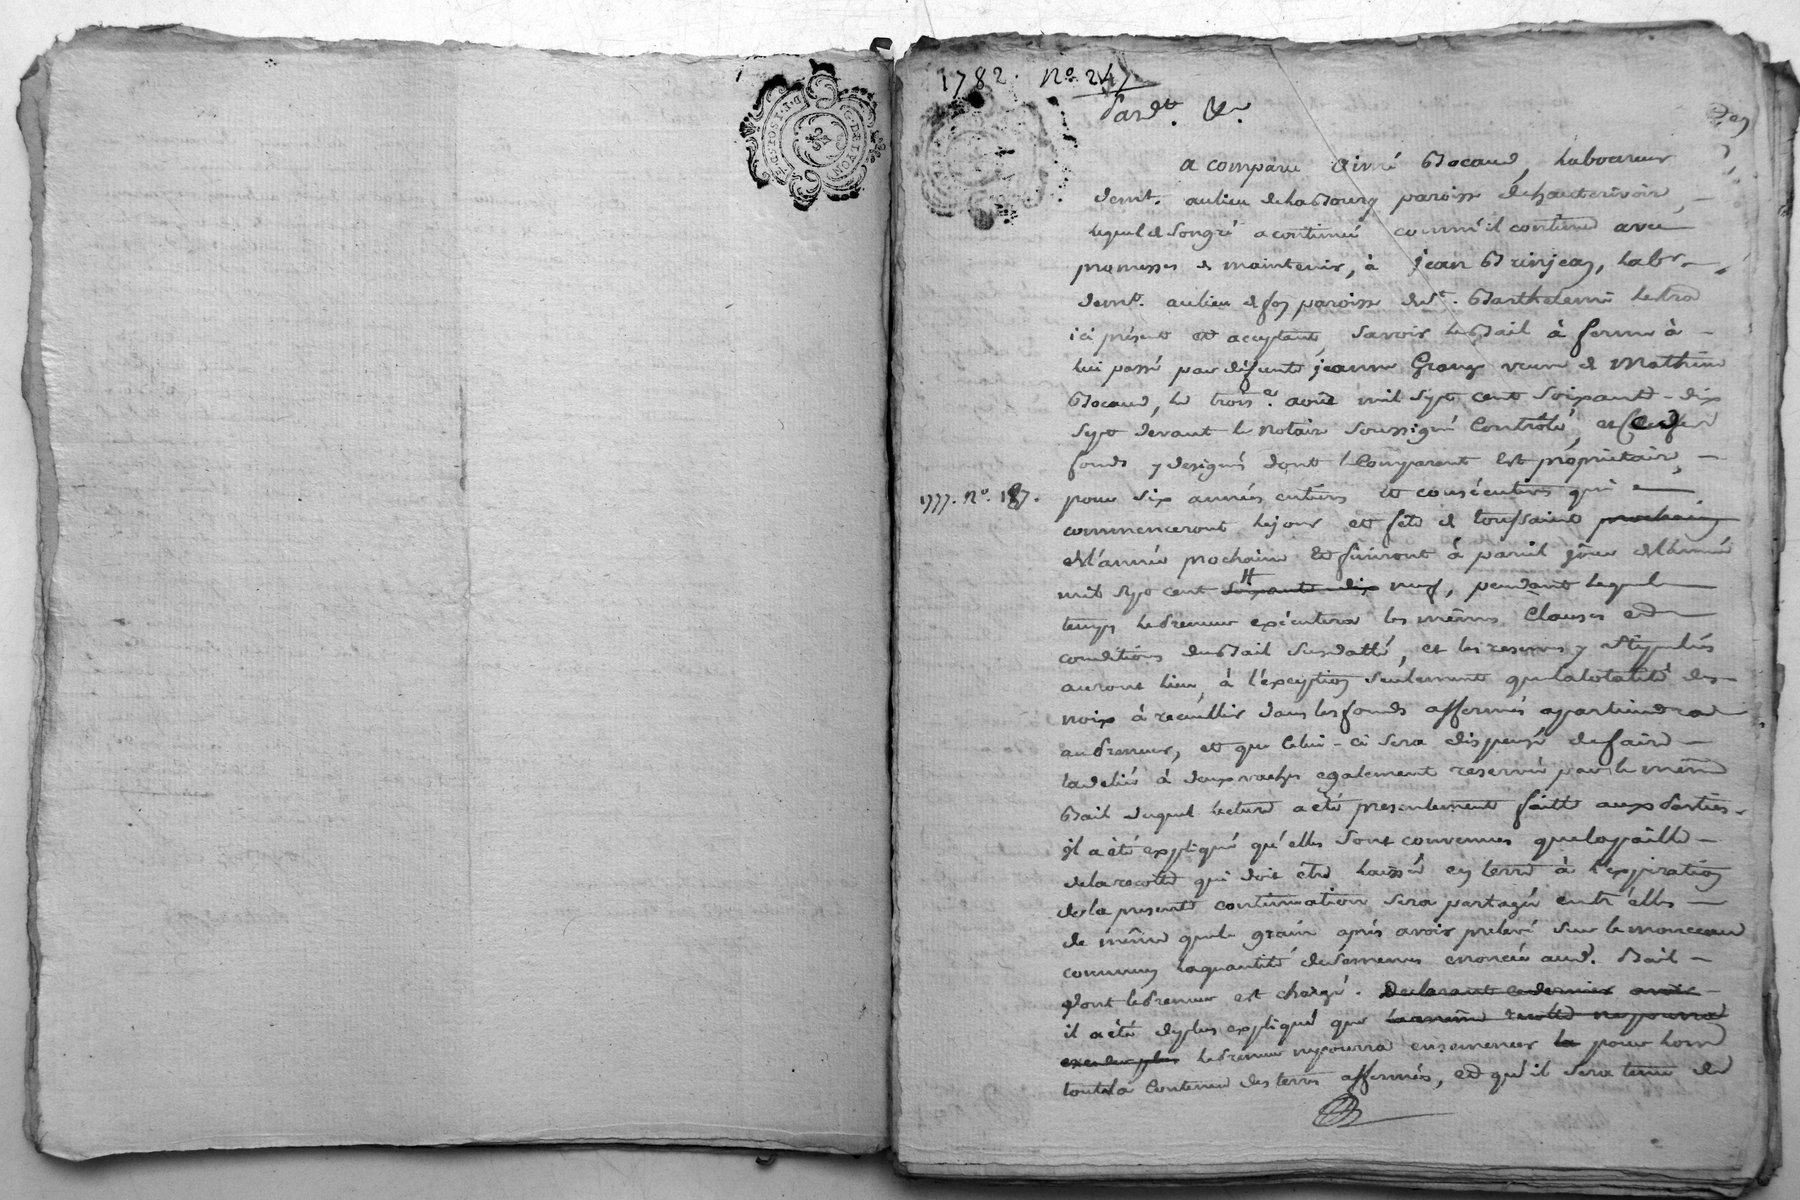 1782. N.o 247
Pard.t &c.
a comparu Aimé Bocaud, Laboureur
demt. au lieu de la Bourg paroisse de hauterivoire,
lequel de son gré a continué comm'il continue avec
promesses de maintenir, à jean Brinjean, labr.
demt. au lieu de paroisse de St. Barthelemi Lestra
ici présent et acceptant, savoir le Bail à ferme à
lui passé par défunte jeanne Grange veuve de Mathieu
Bocaud, le trois.e août mil sept cent soixante-dix
sept devant le notaire soussigné Controlé, et
fonds y designés dont le Comparant est propriétaire,
1777. N.o 187. pour six années entieres et consécutives qui
commenceront le jour et fête de toussaint prochain
de l'année prochaine et finiront à pareil jour de l'année
mil sept cent soixante dix neuf, pendant lequel
temps le preneur exécutera les mêmes Clauses et
conditions du Bail susdatté, et les reserves y stipulées
auront lieu, à l'exception seulement que la totalité des
noix à recueillir dans les fonds affermés apartiendra
au preneur, et que Celui-ci sera dispensé de faire
à deux vaches egalement reservée par le même
Bail duquel lecture a eté presentement faitte aux parties.
il a été expliqué qu'elles sont convenues que la paille
de la recolte qui doit etre laissée en terre à l'expiration
de la presente continuation sera partagée entr'elles
de même que le grain après avoir prélevé sur le monceau
commun la quantité de semences enoncée aud. Bail
dont le preneur est chargé. Declarant ce dernier avoir
il a été de plus expliqué que la même recolte ne pourra
exceder plus le preneur ne pourra ensemencer la pour lors
toute la Contenue des terres affermées, et qu'il sera tenu de